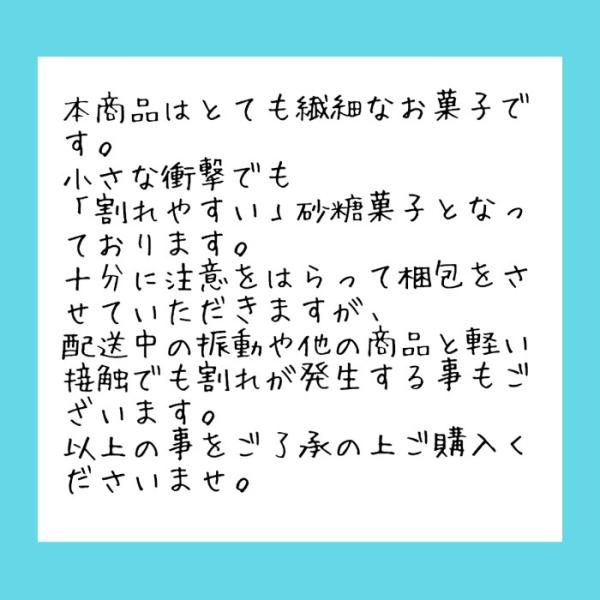 本商品はとても繊細なお菓子で
す。
小さな衝撃でも
「割れやすい」砂糖菓子となっ
ております。
十分に注意をはらって梱包をさ
せていただきますが、
配送中の振動や他の商品と軽い
接触でも割れが発生する事もご
ざいます。
以上の事をご了承の上ご購入く
ださいませ。